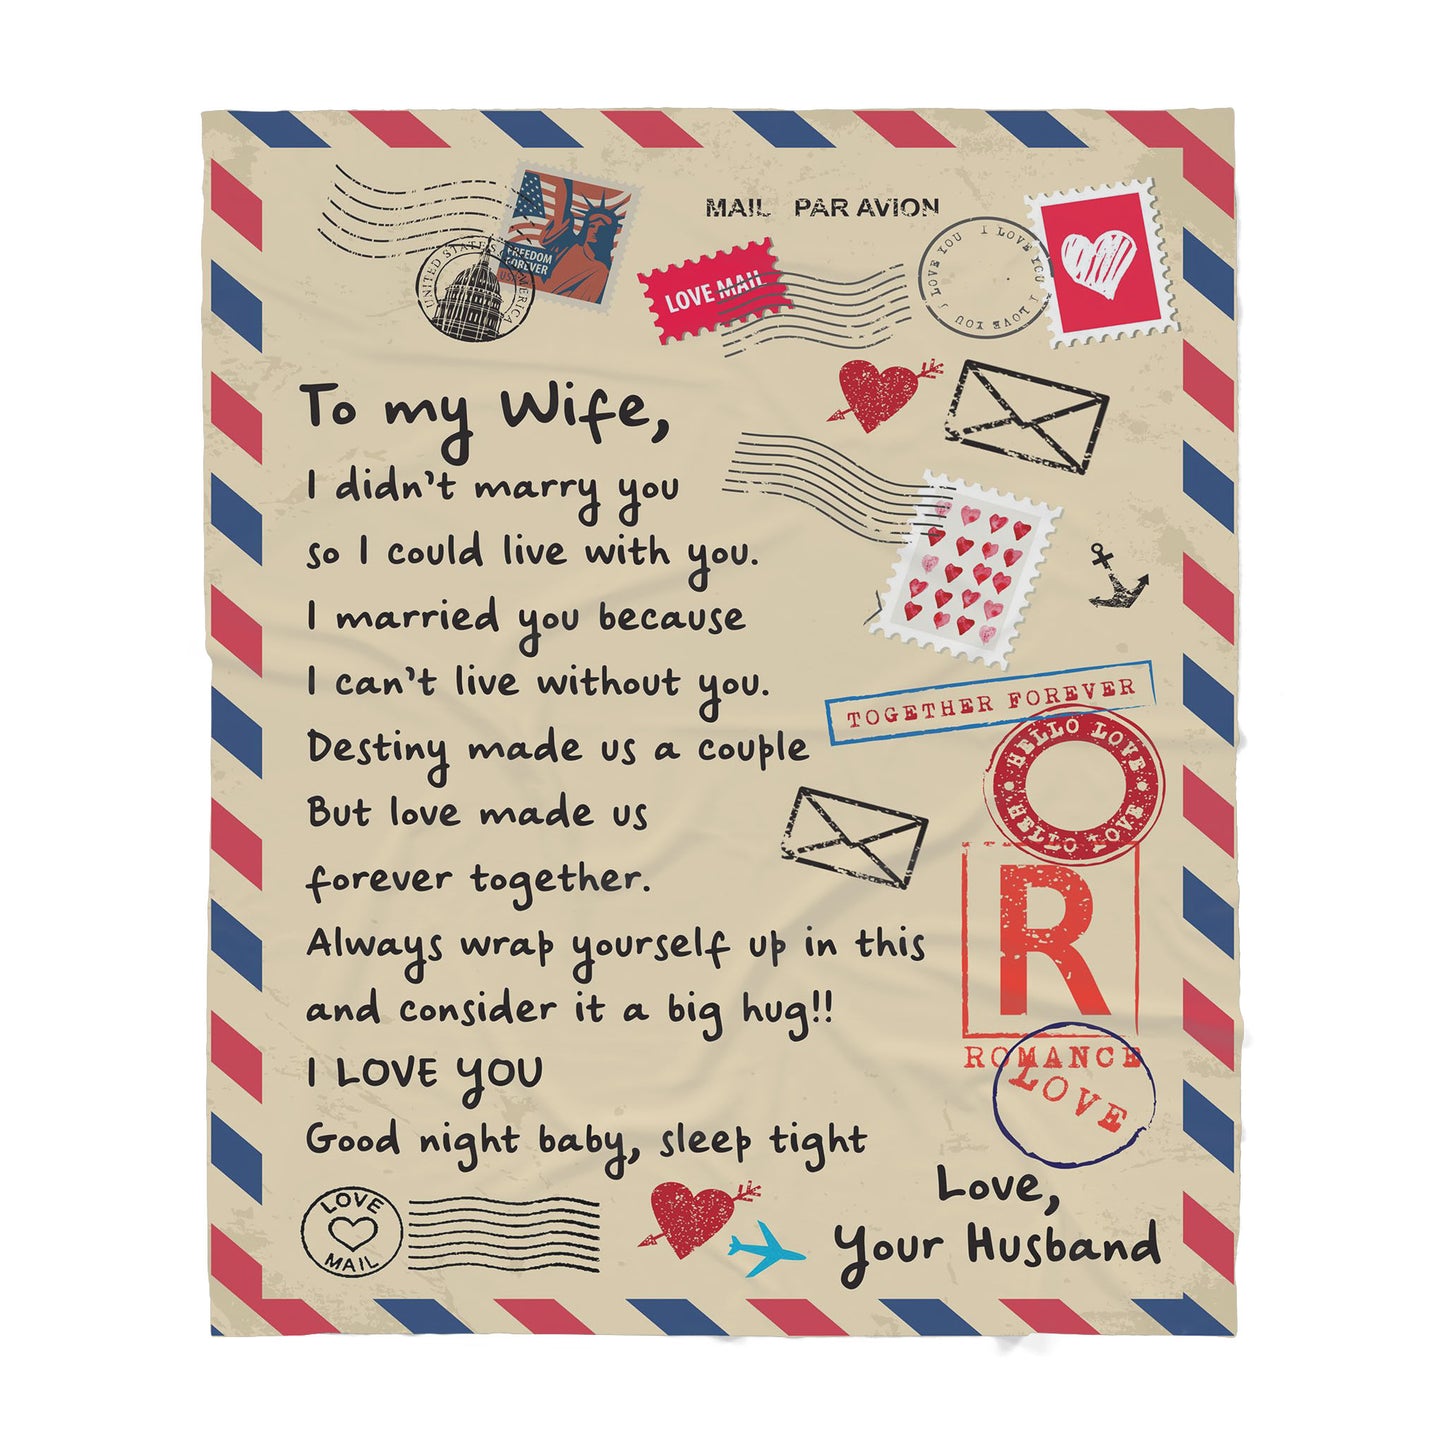 UNITED STATES AMERICA
FREEDOM
FOREVER
USA
MAIL PAR AVION
LOVE MAIL
I LOVE YOU I LOVE YOU I LOVE YOU
To my Wife,
I didn't marry you
so I could live with you.
I married you because
I can't live without you.
Destiny made us a couple
But love made us
forever together.
Always wrap yourself up in this
and consider it a big hug!!
I LOVE YOU
Good night baby, sleep tight
TOGETHER FOREVER
HELLO LOVE
HELLO LOVE
R
ROMANCE
LOVE
Love,
Your Husband
LOVE
MAIL